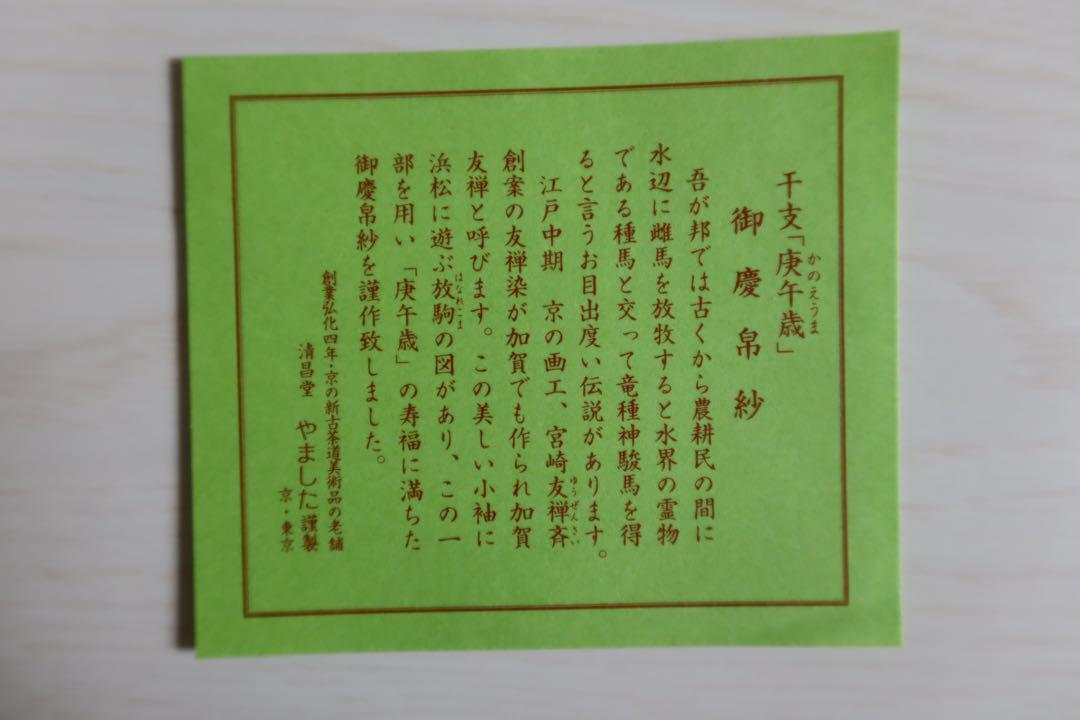 干支「庚午歳」
かのえうま
御慶帛紗
吾が邦では古くから農耕民の間に
水辺に雌馬を放牧すると水界の霊物
である種馬と交って竜種神駿馬を得
ると言うお目出度い伝説があります。
江戸中期 京の画工、宮崎友禅斉
ゆうぜんさい
創案の友禅染が加賀でも作られ加賀
友禅と呼びます。この美しい小袖に
浜松に遊ぶ放駒の図があり、この一
はなれごま
部を用い「庚午歳」の寿福に満ちた
御慶帛紗を謹作致しました。
創業弘化四年・京の新古茶道美術品の老舗
清昌堂 やました謹製
京・東京